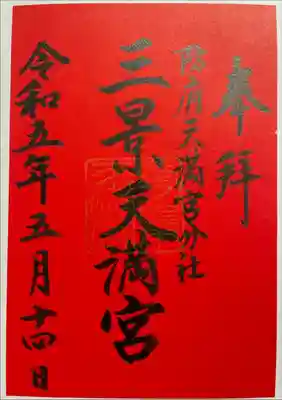 奉拝
防府天満宮分社
三景天満宮
令和五年五月十四日